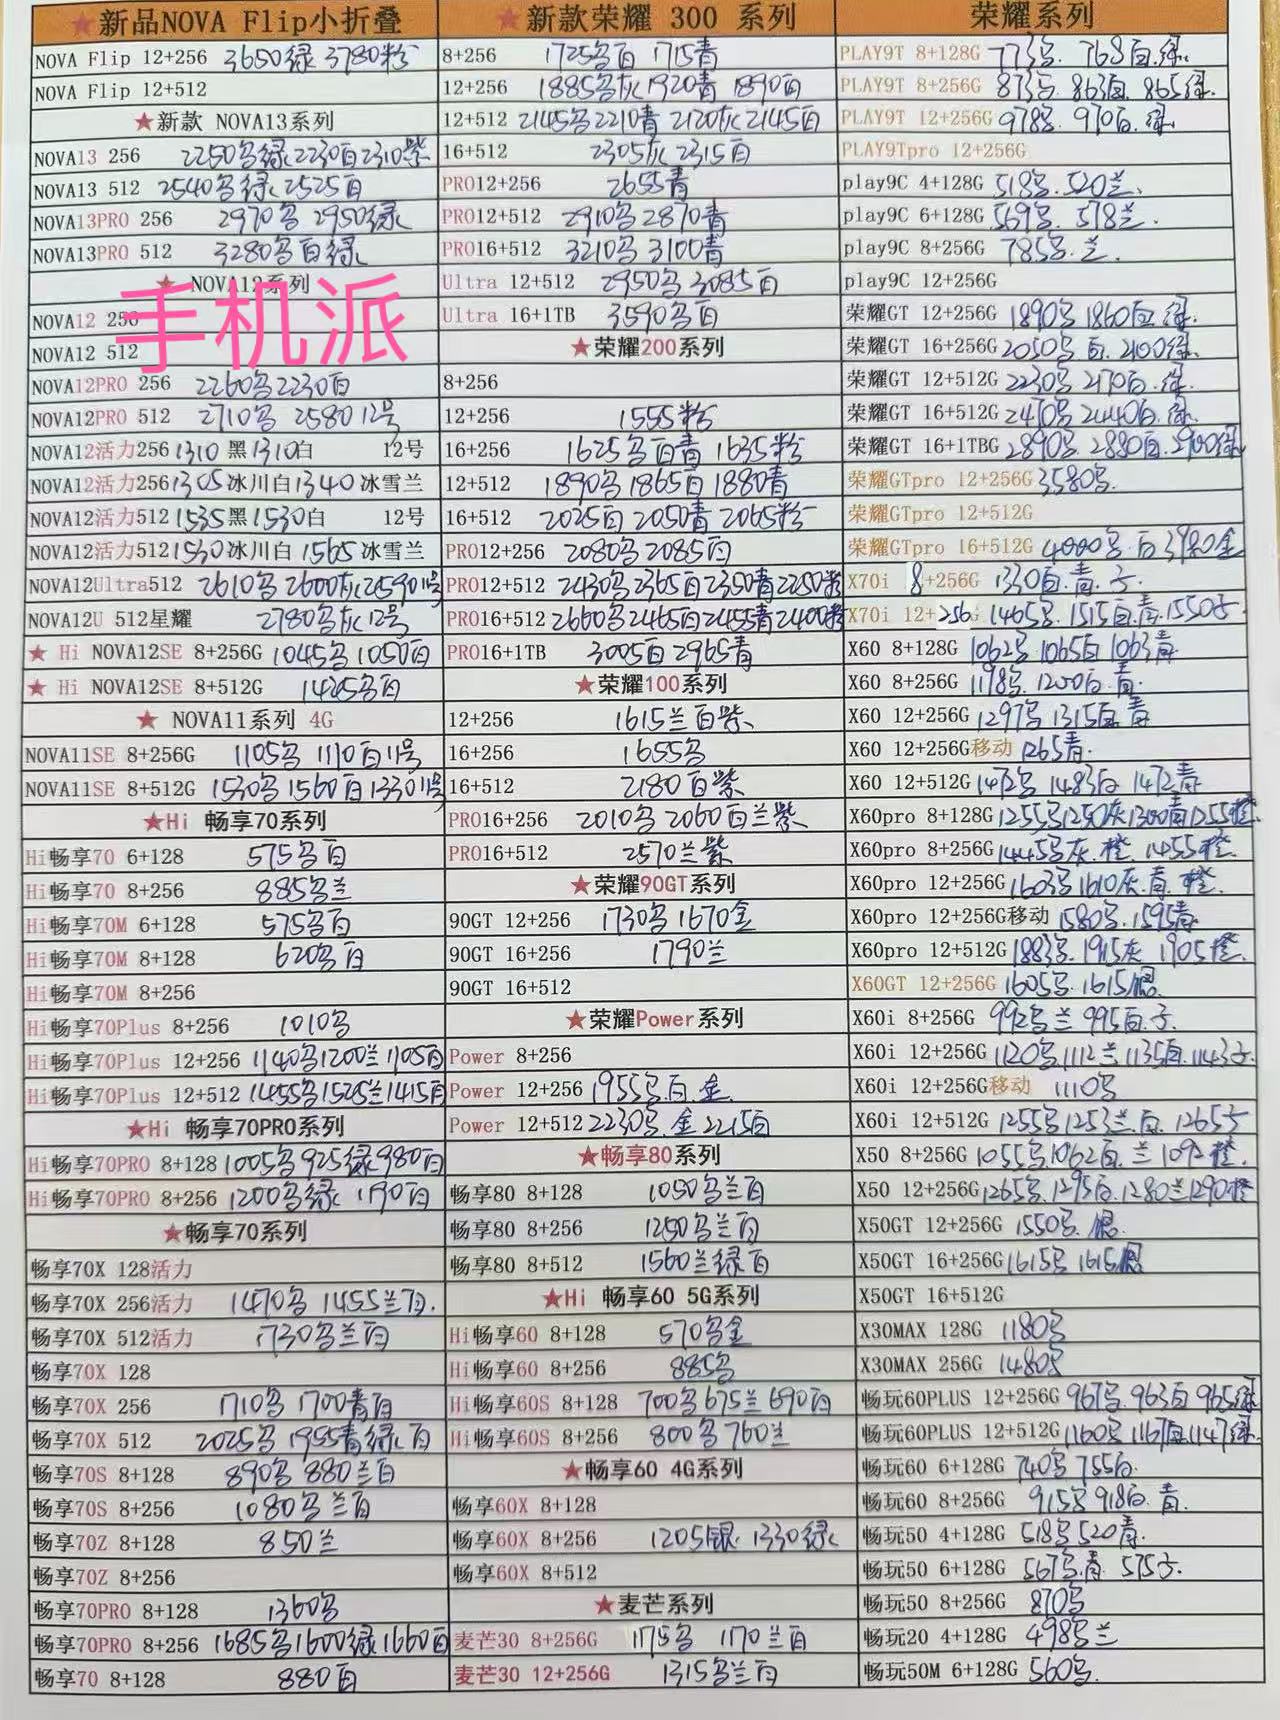 ★新品NOVA Flip小折叠
NOVA Flip 12+256 3650绿 3780粉
NOVA Flip 12+512
★新款 NOVA13系列
NOVA13 256 2250名绿 2230白 2310紫
NOVA13 512 2540名绿 2525白
NOVA13PRO 256 2970名 2950绿
NOVA13PRO 512 3280名白绿
★ NOVA12系列
手机派
NOVA12 256
NOVA12 512
NOVA12PRO 256 2260名 2230白
NOVA12PRO 512 2710名 2580 12号
NOVA12活力256 1310 黑 1310白 12号
NOVA12活力256 1305 冰川白 1340 冰雪兰
NOVA12活力512 1535 黑 1530白 12号
NOVA12活力512 1530 冰川白 1565 冰雪兰
NOVA12Ultra512 2610名 2600灰 2590 11号
NOVA12U 512星耀 2780灰 12号
★ Hi NOVA12SE 8+256G 1045名 1050白
★ Hi NOVA12SE 8+512G 1425名白
★ NOVA11系列 4G
NOVA11SE 8+256G 1105名 1110白 11号
NOVA11SE 8+512G 1530名 1560白 1330 11号
★Hi 畅享70系列
Hi畅享70 6+128 575名白
Hi畅享70 8+256 885名兰
Hi畅享70M 6+128 575名白
Hi畅享70M 8+128 620名白
Hi畅享70M 8+256
Hi畅享70Plus 8+256 1010名
Hi畅享70Plus 12+256 1140名 1200兰 1105白
Hi畅享70Plus 12+512 1455名 1525兰 1415白
★Hi 畅享70PRO系列
Hi畅享70PRO 8+128 1005名 925绿 980白
Hi畅享70PRO 8+256 1200名绿 1190白
★畅享70系列
畅享70X 128活力
畅享70X 256活力 1470名 1455兰白.
畅享70X 512活力 1730名兰白
畅享70X 128
畅享70X 256 1710名 1700青白
畅享70X 512 2025名 1955青绿白
畅享70S 8+128 890名 880兰白
畅享70S 8+256 1080名兰白
畅享70Z 8+128 850兰
畅享70Z 8+256
畅享70PRO 8+128 1360名
畅享70PRO 8+256 1685名 1600绿 1660白
畅享70 8+128 880白
★新款荣耀 300 系列
8+256 1725名白 1715青
12+256 1885名灰 1920青 1890白
12+512 2145名 2210青 2120灰 2145白
16+512 2305灰 2315白
PRO12+256 2655青
PRO12+512 2910名 2870青
PRO16+512 3210名 3100青
Ultra 12+512 2950名 3085白
Ultra 16+1TB 3590名白
★荣耀200系列
8+256
12+256 1555粉
16+256 1625名白青 1635粉
12+512 1890名 1865白 1880青
16+512 2025白 2050青 2065粉
PRO12+256 2080名 2085白
PRO12+512 2430名 2365白 2350青 2250粉
PRO16+512 2660名 2465白 2455青 2400粉
PRO16+1TB 3005白 2965青
★荣耀100系列
12+256 1615兰白紫
16+256 1655名
16+512 2180白紫
PRO16+256 2010名 2060白兰紫
PRO16+512 2570兰紫
★荣耀90GT系列
90GT 12+256 1730名 1670金
90GT 16+256 1790兰
90GT 16+512
★荣耀Power系列
Power 8+256
Power 12+256 1955名.白.金
Power 12+512 2230名.金 2215白
★畅享80系列
畅享80 8+128 1050名兰白
畅享80 8+256 1250名兰白
畅享80 8+512 1560兰绿白
★Hi 畅享60 5G系列
Hi畅享60 8+128 570名金
Hi畅享60 8+256 885名
Hi畅享60S 8+128 700名 675兰 690白
Hi畅享60S 8+256 800名 760兰
★畅享60 4G系列
畅享60X 8+128
畅享60X 8+256 1205银 1330绿
畅享60X 8+512
★麦芒系列
麦芒30 8+256G 1175名 1170兰白
麦芒30 12+256G 1315名兰白
荣耀系列
PLAY9T 8+128G 773名. 768白.绿.
PLAY9T 8+256G 873名. 863白. 865绿.
PLAY9T 12+256G 978名. 970白.绿
PLAY9Tpro 12+256G
play9C 4+128G 518名. 520兰.
play9C 6+128G 569名. 578兰.
play9C 8+256G 785名.兰.
play9C 12+256G
荣耀GT 12+256G 1890名 1860白.绿.
荣耀GT 16+256G 2050名 白. 2100绿.
荣耀GT 12+512G 2230名 2170白.绿.
荣耀GT 16+512G 2470名 2440白.绿.
荣耀GT 16+1TBG 2890名. 2880白. 2900绿
荣耀GTpro 12+256G 3580名.
荣耀GTpro 12+512G
荣耀GTpro 16+512G 4000名.白 3980金
X70i 8+256G 1330白.青.子
X70i 12+256G 1465名. 1515白.青. 1550子
X60 8+128G 1062名 1065白 1063青
X60 8+256G 1198名. 1200白.青.
X60 12+256G 1297名 1315白.青
X60 12+256G移动 1265青.
X60 12+512G 1472名 1483白 1472青
X60pro 8+128G 1255名 1250灰 1300青 1255橙
X60pro 8+256G 1445名灰.橙. 1455橙.
X60pro 12+256G 1603名 1610灰.青.橙.
X60pro 12+256G移动 1580名. 1595青.
X60pro 12+512G 1883名. 1915灰 1905橙.
X60GT 12+256G 1605名. 1615银.
X60i 8+256G 992名兰 995白.子.
X60i 12+256G 1120名 1112兰 1135白. 1143子.
X60i 12+256G移动 1110名
X60i 12+512G 1255名 1253兰.白. 1265子
X50 8+256G 1055名 1062白.兰 1092橙.
X50 12+256G 1265名. 1295白. 1280兰 1290橙
X50GT 12+256G 1550名.银.
X50GT 16+256G 1615名 1615银
X50GT 16+512G
X30MAX 128G 1180名
X30MAX 256G 1480名
畅玩60PLUS 12+256G 967名. 963白 965绿
畅玩60PLUS 12+512G 1160名 1167白. 1147绿.
畅玩60 6+128G 740名 755白.
畅玩60 8+256G 915名 918白.青.
畅玩50 4+128G 518名 520青.
畅玩50 6+128G 567名.青. 575子.
畅玩50 8+256G 870名
畅玩20 4+128G 498名兰
畅玩50M 6+128G 560名.